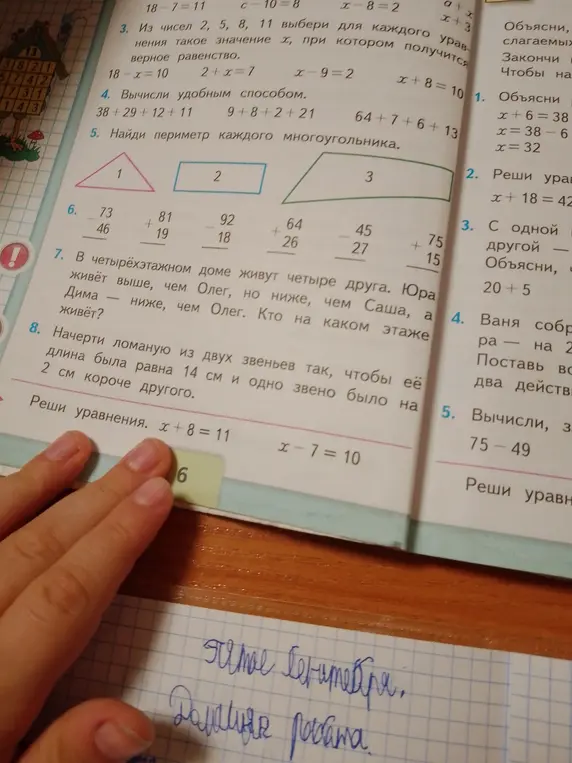 18-7=11 c-10=8 x-8=2
x+3
3. Из чисел 2, 5, 8, 11 выбери для каждого урав-
нения такое значение x, при котором получится
верное равенство.
18-x=10 2+x=7 x-9=2 x+8=10
4. Вычисли удобным способом.
38+29+12+11 9+8+2+21 64+7+6+13
5. Найди периметр каждого многоугольника.
1 2 3
6. -73 +81 -92 +64 -45 +75
46 19 18 26 27 15
7. В четырёхэтажном доме живут четыре друга. Юра
живёт выше, чем Олег, но ниже, чем Саша, а
Дима — ниже, чем Олег. Кто на каком этаже
живёт?
8. Начерти ломаную из двух звеньев так, чтобы её
длина была равна 14 см и одно звено было на
2 см короче другого.
Реши уравнения. x+8=11 x-7=10
6
Объясни,
слагаемых
Закончи
Чтобы на
1. Объясни
x+6=38
x=38-6
x=32
2. Реши ура
x+18=42
3. С одной
другой —
Объясни,
20+5
4. Ваня собр
ра — на 2
Поставь во
два действ
5. Вычисли, з
75-49
Реши уравн
Домашняя работа.